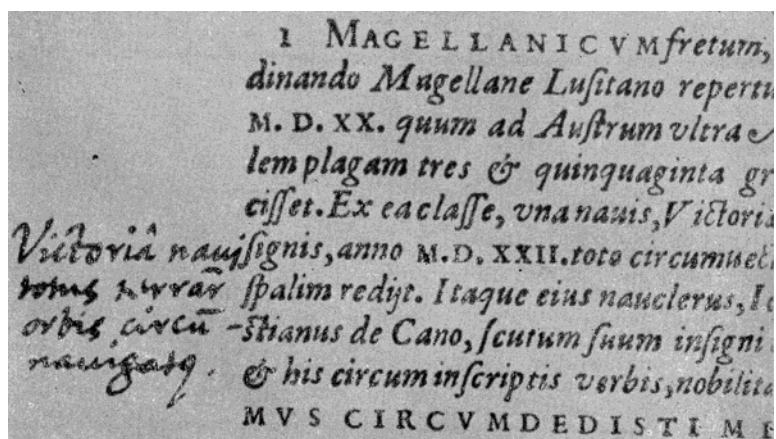 1 MAGELLANICVM fretum,
dinando Magellane Lusitano repertu
M. D. XX. quum ad Austrum vltra
lem plagam tres & quinquaginta gr
cisset. Ex ea classe, vna nauis, Victoris
signis, anno M.D.XXII. toto circumuect
spalim redijt. Itaque eius nauclerus, I
stianus de Cano, scutum suum insigni
& his circum inscriptis verbis, nobilita
MVS CIRCVMDEDISTI ME
Victoriâ naui
totus terrar̄
orbis circū-
nauigatꝰ.